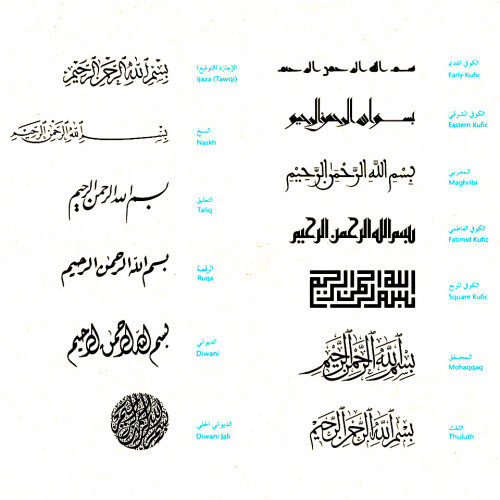 بسم الله الرحمن الرحيم
الإجازة (التوقيع)
Ijaza (Tawqi)
بسم الله الرحمن الرحيم
النسخ
Naskh
بسم الله الرحمن الرحيم
التعليق
Taliq
بسم الله الرحمن الرحيم
الرقعة
Ruqa
بسم الله الرحمن الرحيم
الديواني
Diwani
بسم الله الرحمن الرحيم
الديواني الجلي
Diwani Jali
بسم الله الرحمن الرحيم
الكوفي القديم
Early Kufic
بسم الله الرحمن الرحيم
الكوفي المشرقي
Eastern Kufic
بسم الله الرحمن الرحيم
المغربي
Maghribi
بسم الله الرحمن الرحيم
الكوفي الفاطمي
Fatimid Kufic
بسم الله الرحمن الرحيم
الكوفي المربع
Square Kufic
بسم الله الرحمن الرحيم
المحقق
Mohaqqaq
بسم الله الرحمن الرحيم
الثلث
Thuluth